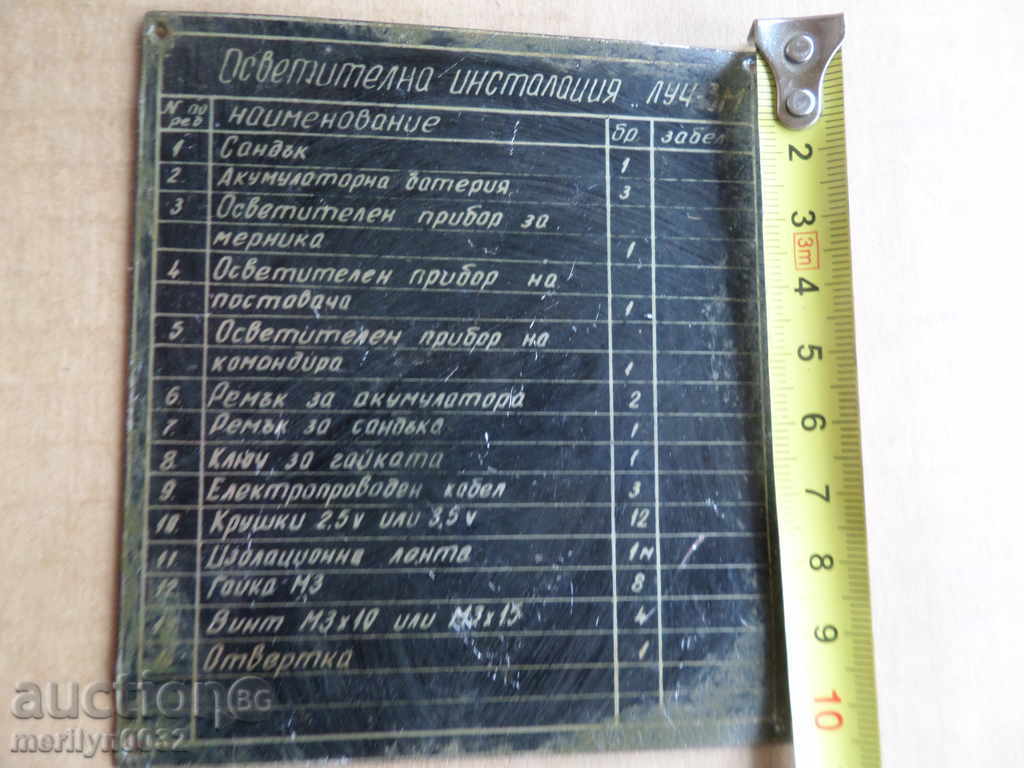 Осветителна инсталация ЛУЧ-2М
N по ред наименование бр забел
1 Сандък 1
2. Акумулаторна батерия 3
3 Осветителен прибор за
мерника 1
4 Осветителен прибор на
поставача 1
5 Осветителен прибор на
командира 1
6. Ремък за акумулатора 2
7. Ремък за сандъка 1
8. Ключ за гайката 1
9. Електропроводен кабел 3
10. Крушки 2.5v или 3,5v 12
11 Изолационна лента 1м
12 Гайка М3 8
Винт М3х10 или М3х15 4
Отвертка 1
2
3
3m
4
5
6
7
8
9
10
auctionBG
merilyn0032